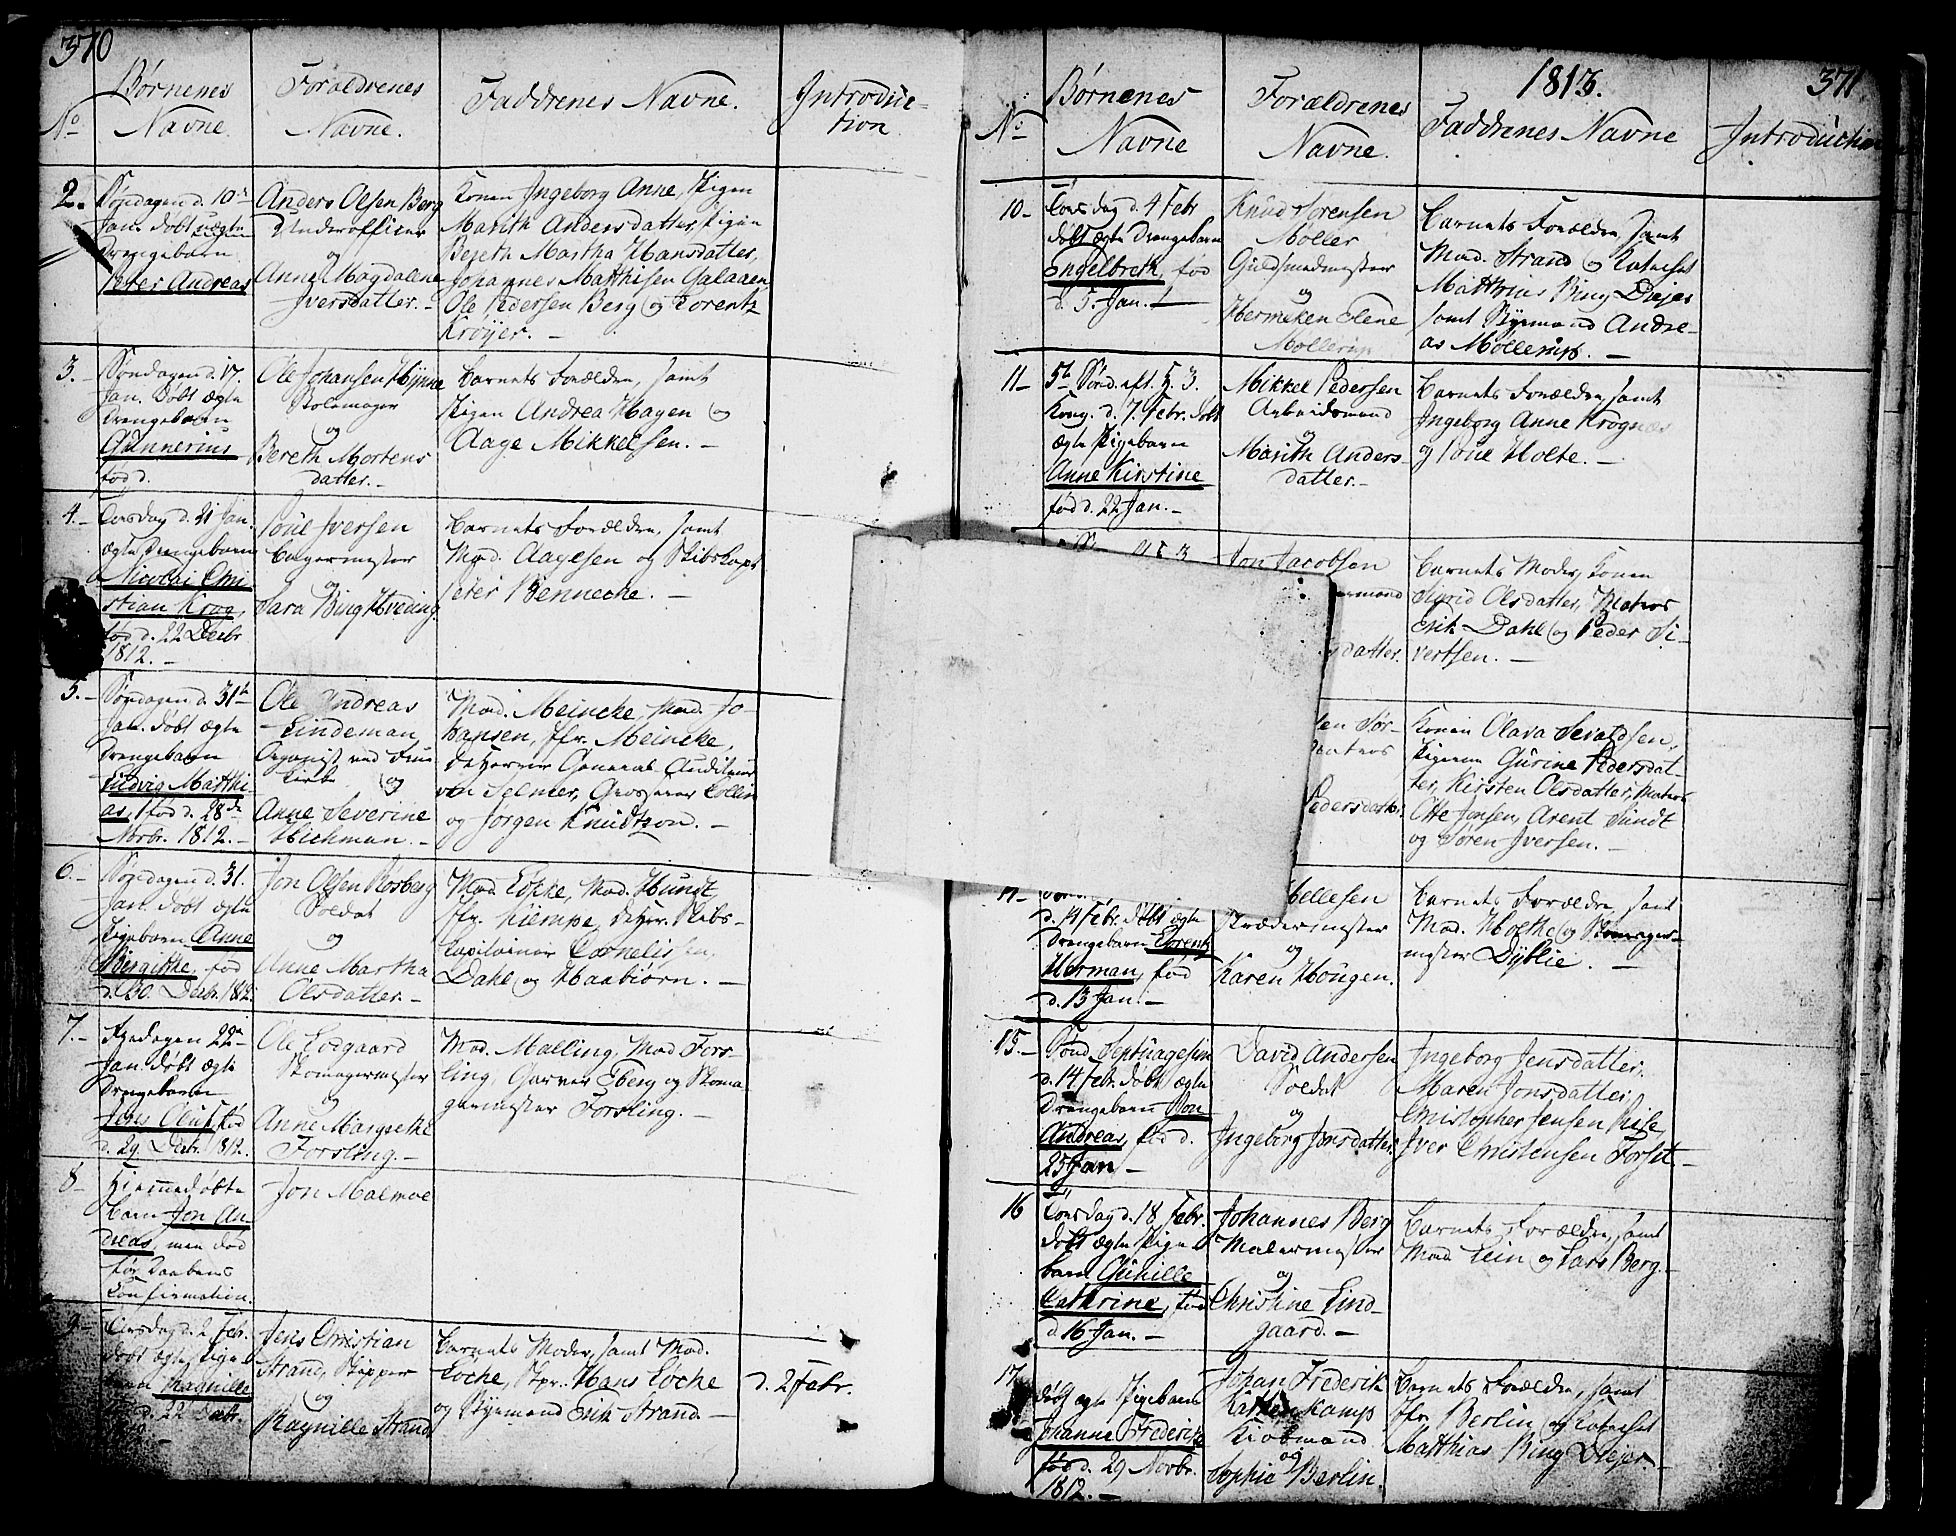 370
No
Børnenes
Navne.
Forældrenes
Navne.
Faddrenes Navne.
Introduc-
tion.
2.
Søndagen d. 10de
Jan. døbt uægte
Drengebarn
Peter Andreas
Anders Olsen Berg
Underofficer
og
Anne Magdalene
Iversdatter. -
Konen Ingeborg Anne, Pigen
Marith Andersdatter, Pigen
Bereth Martha Hansdatter,
Johannes Matthisen Galaaen
Ole Pedersen Berg og Lorentz
Krøyer. -
3. -
Søndagen d. 17.
Jan. Døbt ægte
Drengebarn
Gunnerius
fød d.
Ole Johansen Hynne
Stolemager
og
Bereth Mortens
datter. -
Barnets Forældre, samt
Pigen Andrea Hagen og
Aage Mikkelsen. -
4. -
Torsdag d. 21 Jan.
ægte Drengebarn
Nicolai Chri
stian Krog,
fød d. 22 Decbr
1812. -
Poul Iversen
Bagermester
og
Sara Bing Hveding.
Barnets Forældre, samt
Mad. Aagesen og Skibskapt
Peter Bennecke. -
5. -
Søndagen d. 31te
Jan. døbt ægte
Drengebarn
Ludvig Matthi-
as, fød d. 28de
Novbr. 1812. -
Ole Andreas
Lindeman,
Organist ved Frue
Kirke og
Anne Severine
Hichman. -
Mad. Meincke, Mad. Jo-
hansen, Jfr. Meincke,
de Herrer General-Auditeur
von Selmer, Grosserer Collin
og Jørgen Knudtzon. -
6. -
Søndagen d. 31.
Jan. døbt ægte
Pigebarn Anne
Birgitte, fød
d. 30. Decbr. 1812.
Jon Olsen Rosberg
Soldat
og
Anne Martha
Olsdatter. -
Mad Løkke, Mad. Hundt
Jfr. Kiempe, de Hrr. Skibs-
kapitainer Cornelissen
Dahl og Haabiørn. -
7. -
Fredagen 22de
Jan. døbt ægte
Drengebarn
Jens Oluf, fød
d. 29. Decbr. 1812.
Ole Lodgaard
Skomagermester
og
Anne Margrethe
Forsling. -
Mad. Malling, Mad Fors-
ling, Garver Eberg og Skoma
germester Forsling. -
8
Hiemmedøbte
Barn Jon An-
dreas, men død
før Daabens
Confirmation.
Jon Malmoe
9
Tirsdag d. 2 Febr.
døbt ægte Pige
barn Ragnille
fød d. 22 Decbr.
Jens Christian
Strand, Skipper
og
Ragnille Strand
Barnets Moder, samt Mad.
Løche, Skpr. Hans Løche
og Styrmand Erik Strand. -
d. 2 Febr.
371
1813.
No
Børnenes
Navne
Forældrenes
Navne.
Faddrenes Navne
Introduction
10 -
Torsdag d. 4 Febr
døbt ægte Drengebarn
Engelbreth, fød
d. 5. Jan. -
Knud Sørensen
Møller
Guldsmedmester
og
Hermeken Elene
Møllerup
Barnets Forældre, samt
Mad. Strand og Kateket
Matthias Bing Drejer
samt Styrmand Andre-
as Møllerup. -
11 -
5te Sønd. eft. H. 3.
Kong. d. 7. Febr. døbt
ægte Pigebarn
Anne Kirstine
fød d. 22 Jan. -
Mikkel Pedersen
Arbeidsmand
og
Marith Anders-
datter. -
Barnets Forældre, samt
Ingeborg Anne Krognes
og Poul Holte. -
Jon Jacobsen
datter.
Barnets Moder, Konen
Sigrid Olsdatter, Matros
Erik Dahl og Peder Si-
vertsen. -
Pedersdatter
Konen Olava Sevaldsen,
Pigerne Gurine Pedersdat-
ter, Kirsten Olsdatter, Matros
Otte Jonsen, Arent Sundt
og Søren Iversen. -
d. 14 Febr. døbt ægte
Drengebarn Lorentz
Herman, fød
d. 13 Jan. -
Hellesen
Skrædermester
og
Karen Hougen.
Barnets Forældre, samt
Mad. Holthe og Skomager-
mester Dyblie. -
15. -
Sønd. Septuagesim
d. 14 Febr. døbt ægte
Drengebarn Jon
Andreas, fød d.
25 Jan -
David Andersen
Soldat
og
Ingeborg Jonsdatter.
Ingeborg Jensdatter.
Maren Jonsdatter,
Christopher Jensen Riise
Iver Christensen Forset. -
16
Torsdag d. 18 Febr.
døbt ægte Pige
barn Gunille
Cathrine, fød
d 16 Jan. -
Johannes Berg
Malermester
og
Christine Lind-
gaard. -
Barnets Forældre, samt
Mad Lein og Lars Berg. -
17
døbt ægte Pigebarn
Johanne Frederike
fød d. 29 Novbr.
1812. -
Johan Frederik
Kattenkamp
Kiøbmand
og
Sophie Berlin.
Barnets Forældre, samt
Jfr. Berlin og Kateket
Matthias Bing Drejer. -